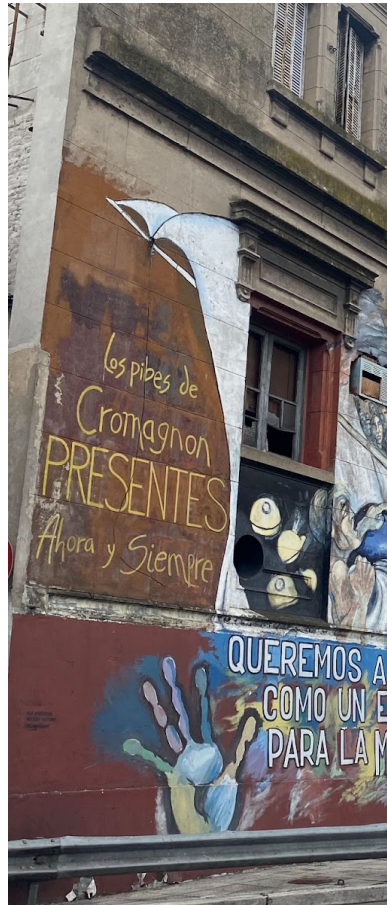 los pibes de
Cromagnon
PRESENTES
Ahora y Siempre
QUEREMOS
COMO UN
PARA LA